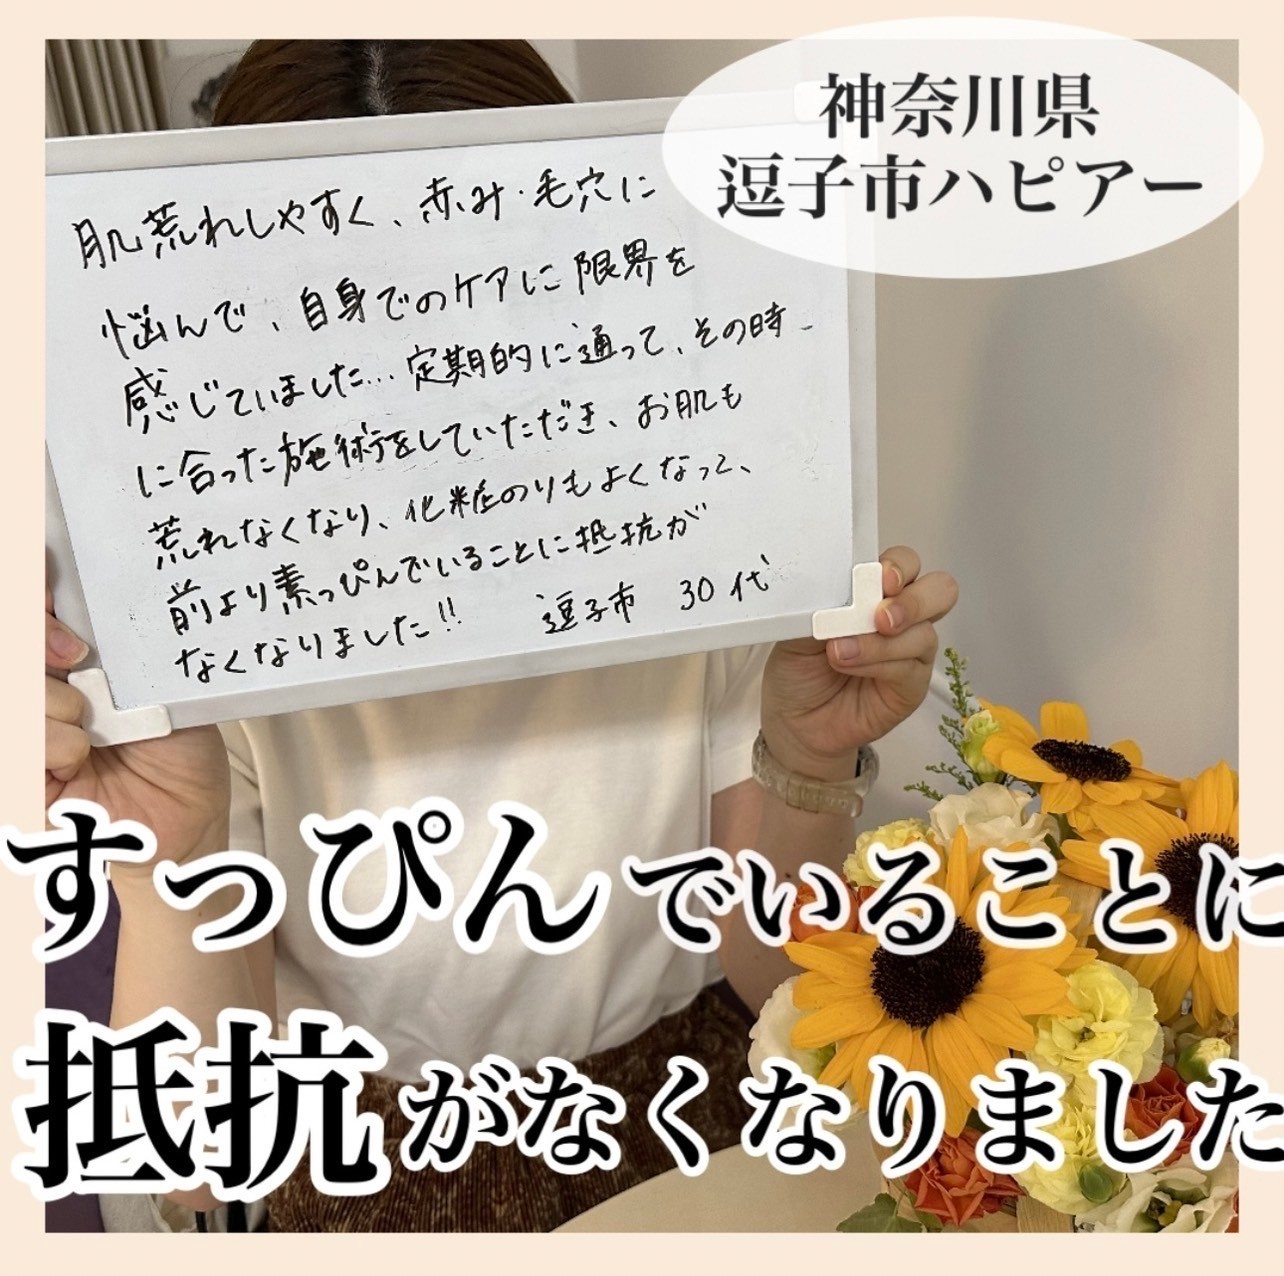 神奈川県
逗子市ハピアー
肌荒れしやすく、赤み・毛穴に
悩んで、自身でのケアに限界を
感じていました…定期的に通って、その時
に合った施術をしていただき、お肌も
荒れなくなり、化粧のりもよくなって、
前より素っぴんでいることに抵抗が
なくなりました!!
逗子市 30代
すっぴんでいることに
抵抗がなくなりました